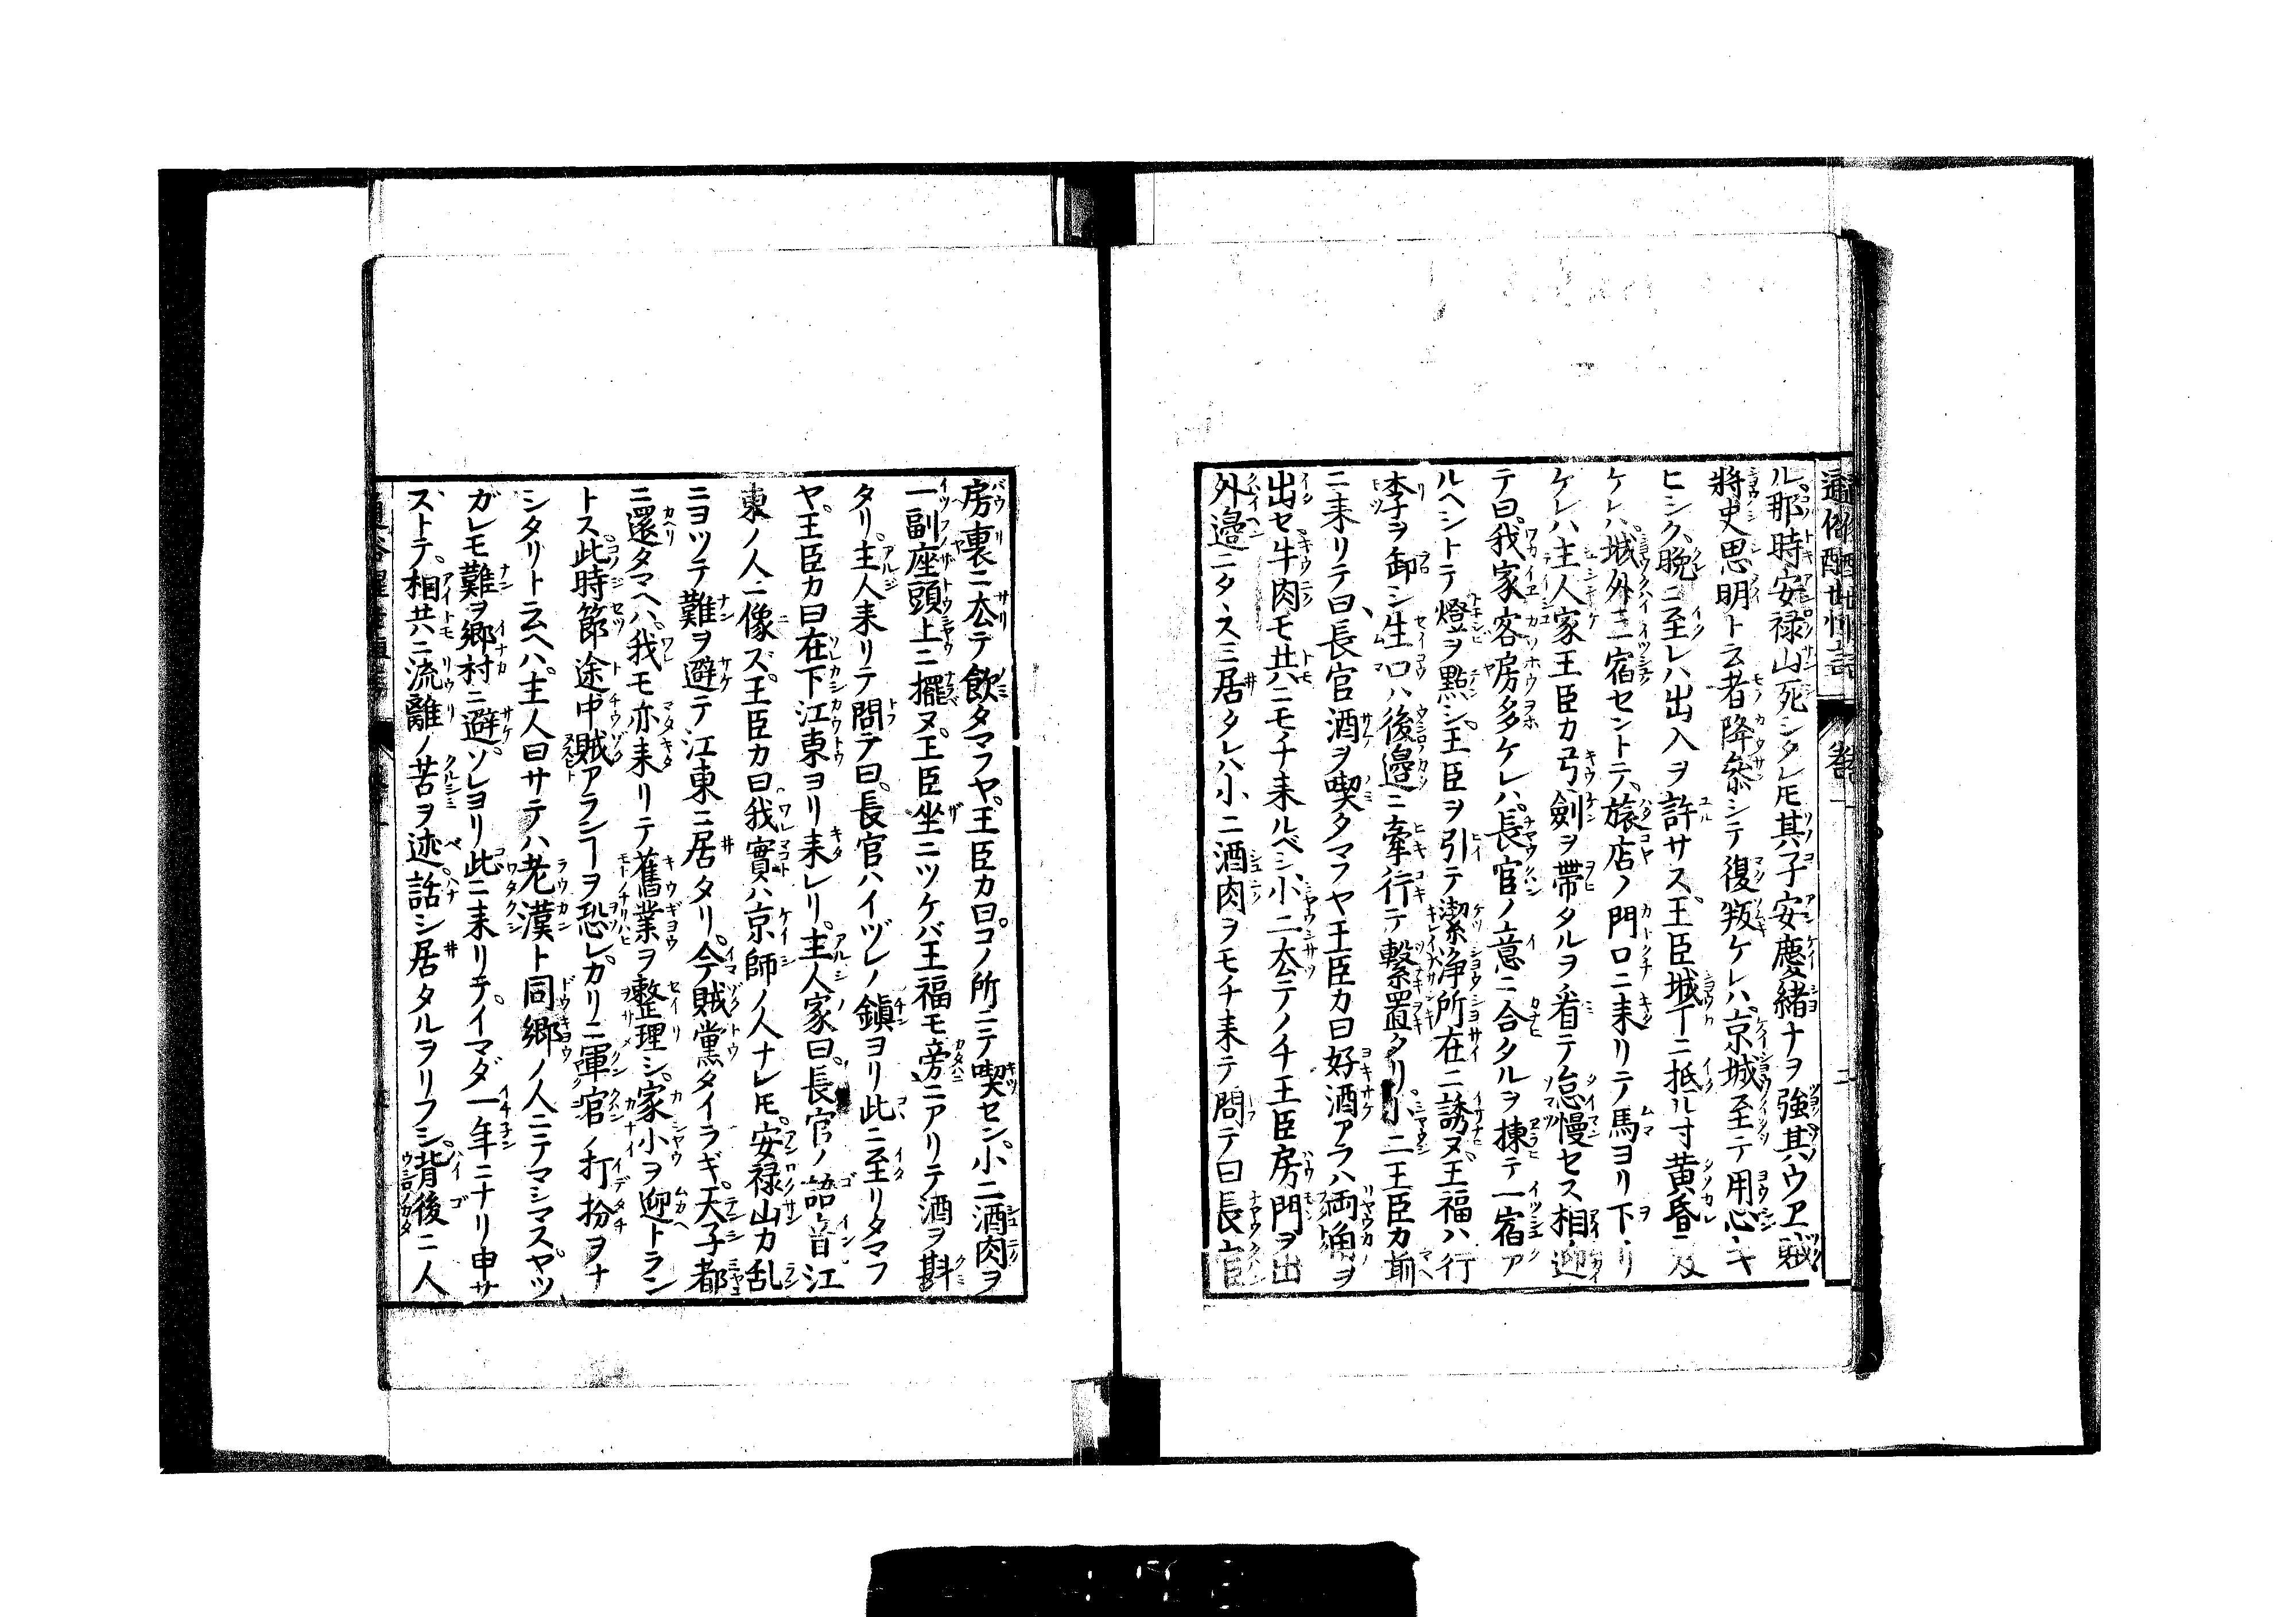 通俗醒世恒言 卷一 二
ル那時安禄山死シタレ𪜈其子安慶緒ナヲ強其ウヱ賊
將史思明ト云者降叅シテ復叛ケレハ京城至テ用心キ
ヒシク晩ニ至レハ出入ヲ許サス王臣城下ニ抵ル寸黄昏ニ及
ケレハ城外ニ一宿セントテ旅店ノ門口ニ耒リテ馬ヨリ下リ
ケレハ主人家王臣カ弓劍ヲ帶タルヲ看テ怠慢セス相迎
テ曰我家客房多ケレハ長官ノ意ニ合タルヲ揀テ一宿ア
ルヘシトテ燈ヲ點シ王臣ヲ引テ潔浄所在ニ誘ヌ王福ハ行
李ヲ卸シ生口ハ後邉ニ牽行テ繋置タリ小二王臣カ前
ニ耒リテ曰長官酒ヲ喫タマフヤ王臣カ曰好酒アラハ両角ヲ
出セ牛肉モ共ニモチ耒ルベシ小二去テノチ王臣房門ヲ出
外邉ニタヽスミ居タレハ小二酒肉ヲモチ耒テ問テ曰長官
房裏ニ去テ飲タマフヤ王臣カ曰コノ所ニテ喫セン小二酒肉ヲ
一副座頭上ニ擺ヌ王臣坐ニツケバ王福モ旁ニアリテ酒ヲ斟
タリ主人耒リテ問テ曰長官ハイヅレノ鎭ヨリ此ニ至リタマフ
ヤ王臣カ曰在下江東ヨリ耒レリ主人家曰長官ノ語音江
東ノ人ニ像ズ王臣カ曰我實ハ京師ノ人ナレ𪜈安禄山カ乱
ニヨツテ難ヲ避テ江東ニ居タリ今賊黨タイラギ天子都
ニ還タマヘハ我モ亦耒リテ舊業ヲ整理シ家小ヲ迎トラン
トス此時節途中賊アランヿヲ恐レカリニ軍官ノ打扮ヲナ
シタリト云ヘハ主人曰サテハ老漢ト同郷ノ人ニテマシマスヤツ
ガレモ難ヲ郷村ニ避ソレヨリ此ニ耒リテイマダ一年ニナリ申サ
ストテ相共ニ流離ノ苦ヲ述話シ居タルヲリフシ背後ニ人